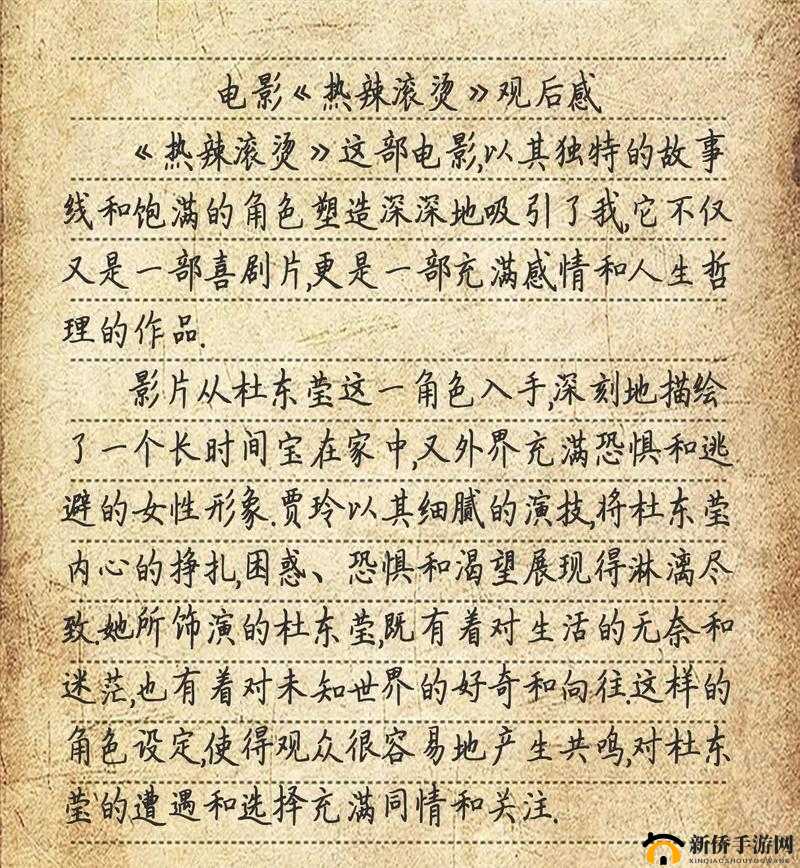 电影《热辣滚烫》观后感
《热辣滚烫》这部电影,以其独特的故事
线和饱满的角色塑造深深地吸引了我,它不仅
又是一部喜剧片,更是一部充满感情和人生哲
理的作品.
影片从杜东莹这一角色入手,深刻地描绘
了一个长时间宝在家中,又外界充满恐惧和逃
避的女性形象.贾玲以其细腻的演技,将杜东莹
内心的挣扎,困惑、恐惧和渴望展现得淋漓尽
致.她所饰演的杜东莹,既有着对生活的无奈和
迷茫,也有着对未知世界的好奇和向往.这样的
角色设定,使得观众很容易地产生共鸣,对杜东
莹的遭遇和选择充满同情和关注.
新侨手游网
XINQIAOSHOUYOUWANG